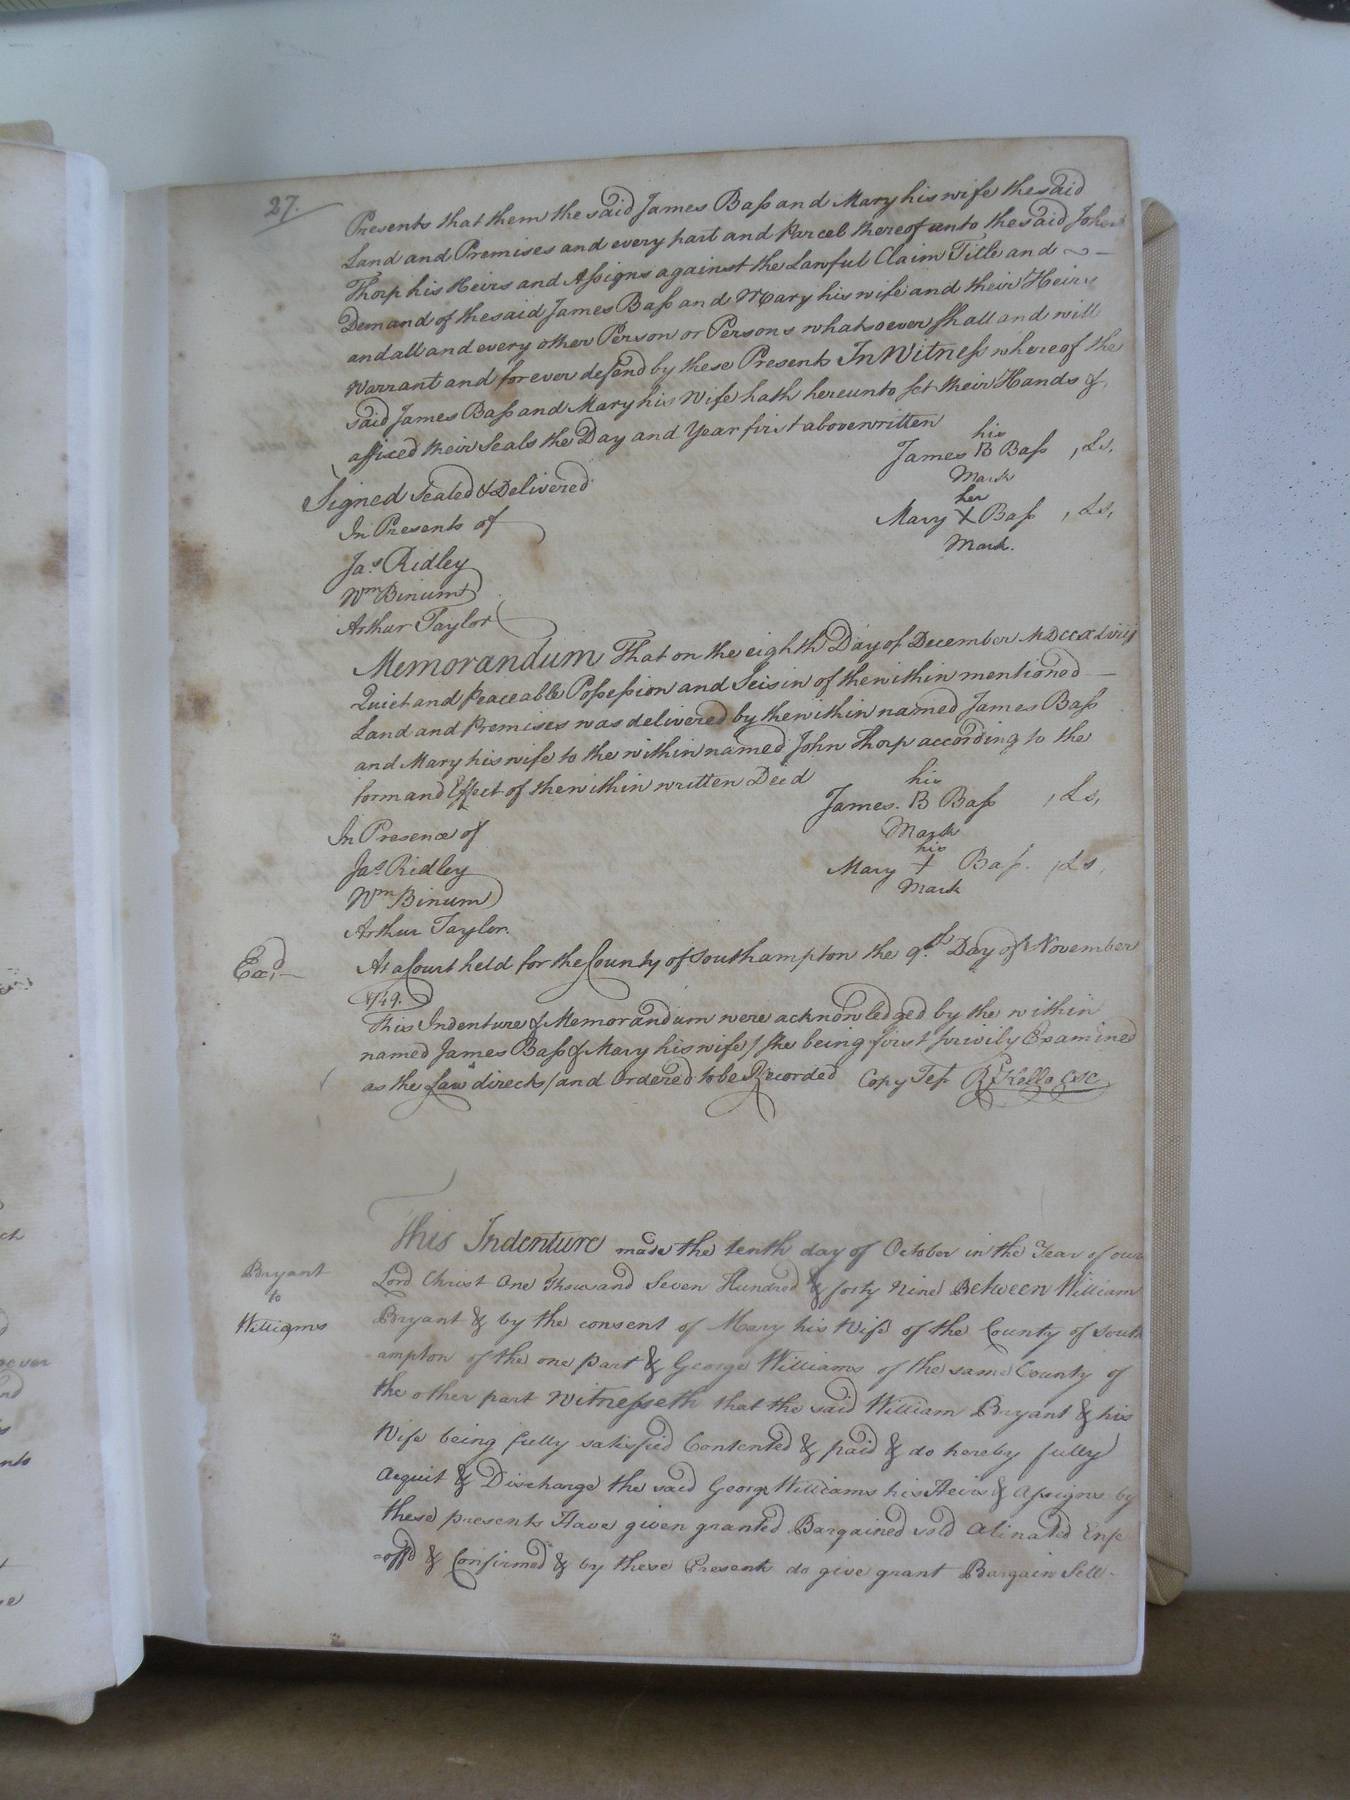 27.
Presents that them the said James Bass and Mary his wife the said
Land and Premises and every part and Parcel thereof unto the said John
Thorp his Heirs and Assigns against the Lawful Claim Title and
Demand of the said James Bass and Mary his wife and their Heirs
and all and every other Person or Persons whatsoever shall and will
Warrant and forever defend by these Presents In Witness whereof the
said James Bass and Mary his Wife hath hereunto set their Hands &
affixed their Seals the Day and Year first above written
his
James B Bass , Ls,
Mark
Signed Sealed & Delivered
her
Mary X Bass , Ls,
Mark.
In Presents of
Jas Ridley
Wm Binum
Arthur Taylor
Memorandum That on the eighth Day of December MDCCXLviij
Quiet and Peaceable Possession and Seisin of the within mentioned
Land and Premises was delivered by the within named James Bass
and Mary his wife to the within named John Thorp according to the
form and Effect of the within written Deed
his
James. B Bass , Ls,
Mark
In Presence of
his
Mary + Bass. , Ls,
Mark
Jas Ridley
Wm Binum
Arthur Taylor.
Exd,
At a Court held for the County of Southampton the 9th Day of November
1749.
This Indenture & Memorandum were acknowledged by the within
named James Bass & Mary his wife / she being first privily Examined
as the Law directs / and Ordered to be Recorded Copy Test Rd Kello CSC
Bryant
to
Williams
This Indenture made the tenth day of October in the Year of our
Lord Christ One Thousand Seven Hundred & forty Nine Between William
Bryant & by the consent of Mary his Wife of the County of South
ampton of the one part & George Williams of the same County of
the other part Witnesseth that the said William Bryant & his
Wife being fully satisfied Contented & paid & do hereby fully
Acquit & Discharge the said George Williams his Heirs & Assigns by
these presents Have given granted Bargained sold Alinated Enfe
=offd & Confirmed & by these Presents do give grant Bargain Sell